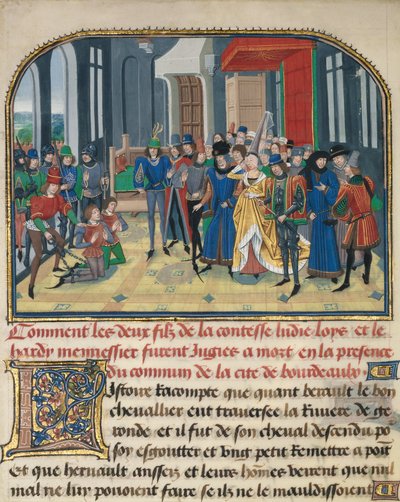 Comment les deux filz de la contesse ludie loys et le
hardy mennessier furent Jugies a mort en la presence
du commun de la cite de bourdeaulx
L Istoire Racompte que quant berault le bon
chevallier eut traversee la Riuere de ge
ronde et il fut de son cheval descendu po
soy esgoutter et Ung petit Remettre a point
Et que hernault ansseis et leurs homes veirent que nul
mal ne luy pouoient faire se ilz ne le mauldissoient